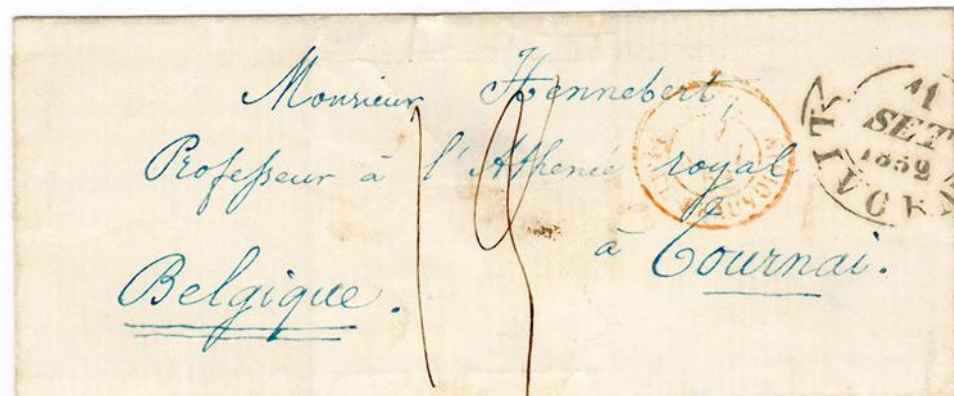 Monsieur Hennebert,
Professeur à l'Athénée royal
à Tournai.
Belgique.
11
SET
1852